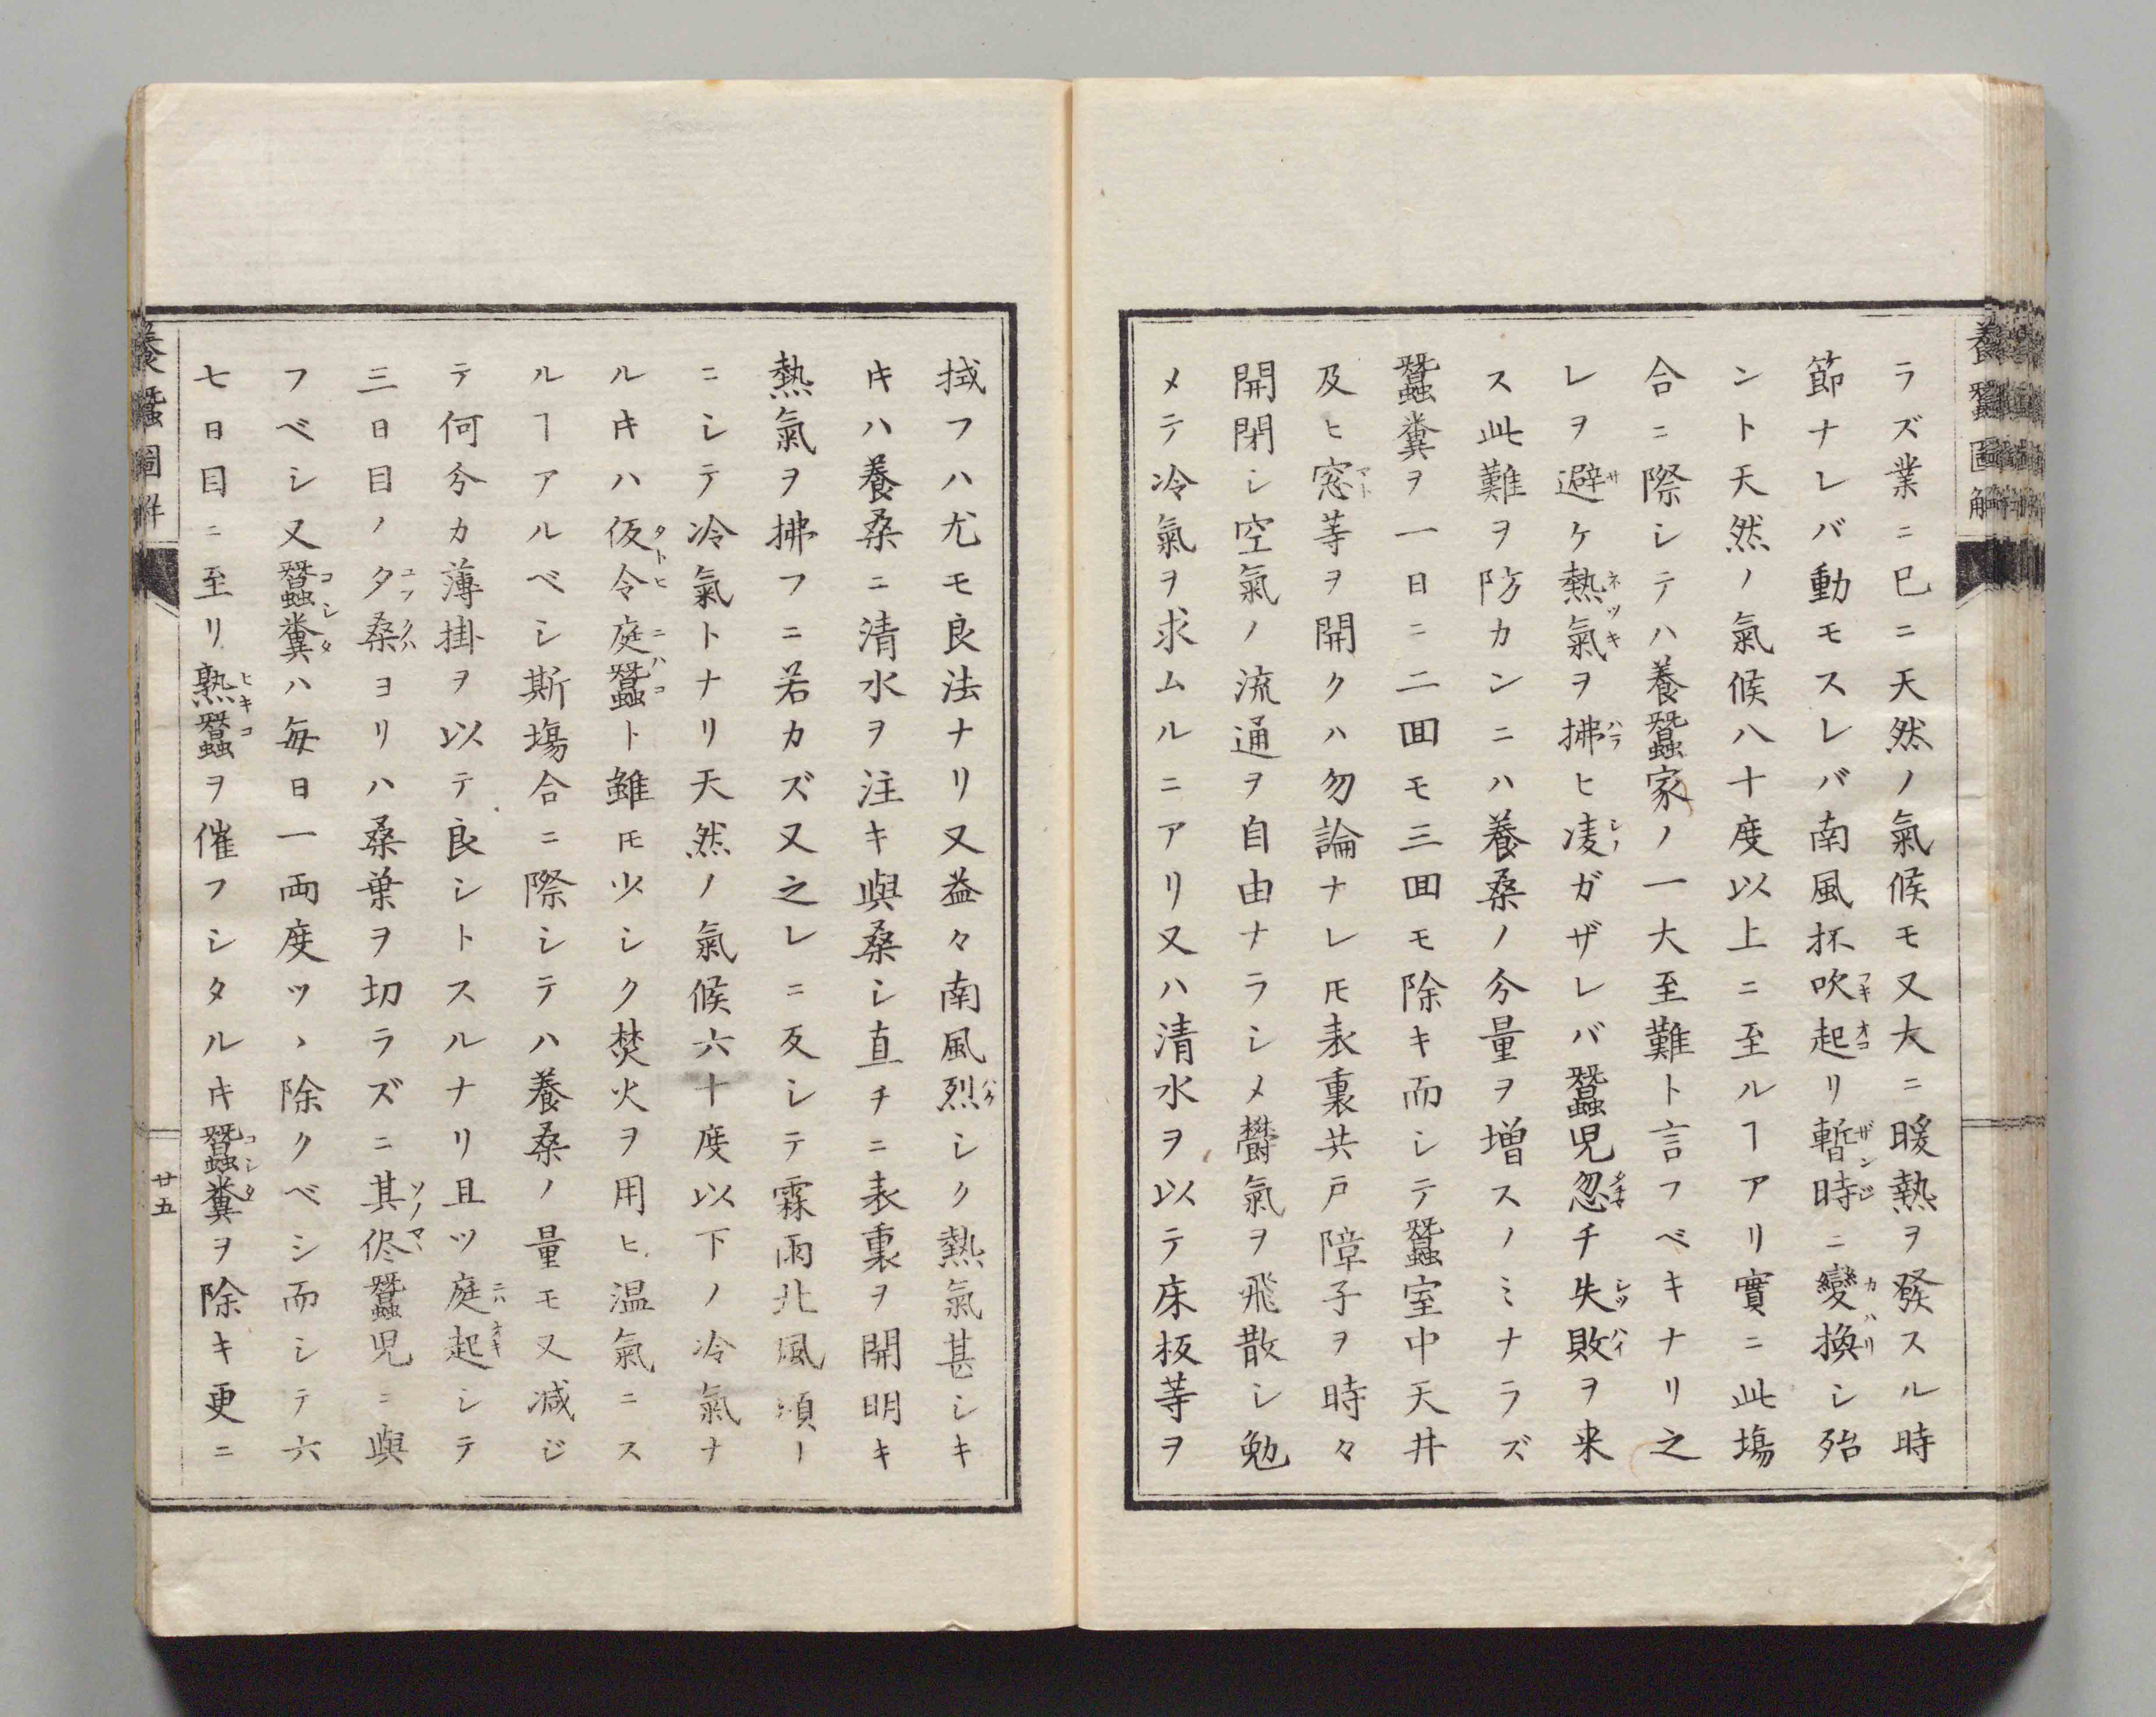 養蠶圖解
ラズ業ニ巳ニ天然ノ氣候モ又大ニ暖熱ヲ發スル時
節ナレバ動モスレバ南風抔吹起リ暫時ニ變換シ殆
ント天然ノ氣候八十度以上ニ至ルヿアリ實ニ此塲
合ニ際シテハ養蠶家ノ一大至難ト言フベキナリ之
レヲ避ケ熱氣ヲ拂ヒ凌ガザレバ蠶児忽チ失敗ヲ来
ス此難ヲ防カンニハ養桑ノ分量ヲ増スノミナラズ
蠶糞ヲ一日ニ二回モ三回モ除キ而シテ蠶室中天井
及ヒ窓等ヲ開クハ勿論ナレ𪜈表裏共戸障子ヲ時々
開閉シ空氣ノ流通ヲ自由ナラシメ欝氣ヲ飛散シ勉
メテ冷氣ヲ求ムルニアリ又ハ清水ヲ以テ床板等ヲ
拭フハ尤モ良法ナリ又益々南風烈シク熱氣甚シキ
𪜈ハ養桑ニ清水ヲ注キ與桑シ直チニ表裏ヲ開明キ
熱氣ヲ拂フニ若カズ又之レニ反シテ霖雨北風頻ー
ニシテ冷氣トナリ天然ノ氣候六十度以下ノ冷氣ナ
ルキハ仮令庭蠶ト雖𪜈少シク焚火ヲ用ヒ温氣ニス
ルヿアルベシ斯塲合ニ際シテハ養桑ノ量モ又减ジ
テ何分カ薄掛ヲ以テ良シトスルナリ且ツ庭起シテ
三日目ノ夕桑ヨリハ桑葉ヲ切ラズニ其侭蠶児ニ與
フベシ又蠶糞ハ毎日一両度ツヽ除クベシ而シテ六
七日目ニ至リ熟蠶ヲ催フシタルキ蠶糞ヲ除キ更ニ
養蠶圖解
廿五